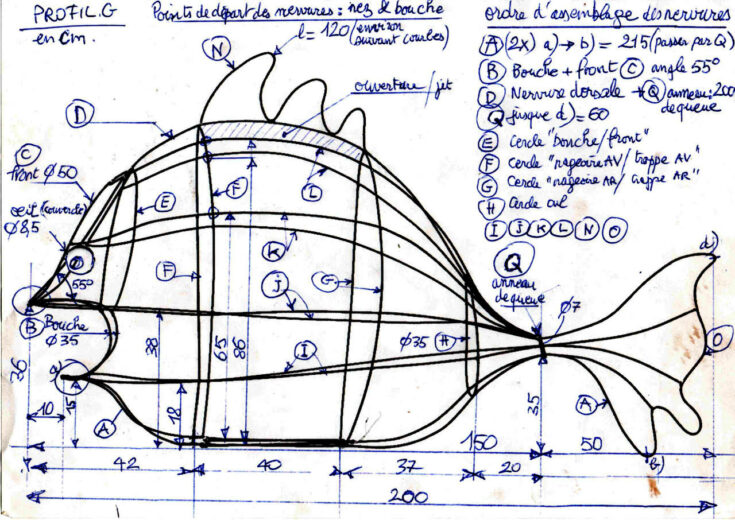 PROFIL.G
en cm.
Points de départ des nervures : nez & bouche
l = 120 (environ
suivant courbes)
ordre d'assemblage des nervures
A (2x) a) → b) = 215 (passer par Q)
B Bouche + front C angle 55°
D Nervure dorsale → Q anneau : 200
de queue
Q jusque d) = 60
E Cercle "bouche/front"
F Cercle "nageoire AV / trappe AV"
G Cercle "nageoire AR / trappe AR"
H Cercle cul
I J K L N O
N
ouverture/jet
D
C
front Ø50
oeil (couvercle)
Ø8,5
O
55°
B Bouche
Ø35
E
F
F
L
K
J
G
I
H
Ø35
Q
anneau
de queue
Ø7
d)
O
A
b)
a)
A
36
10
15
18
38
65
86
35
150
50
42
40
37
20
200